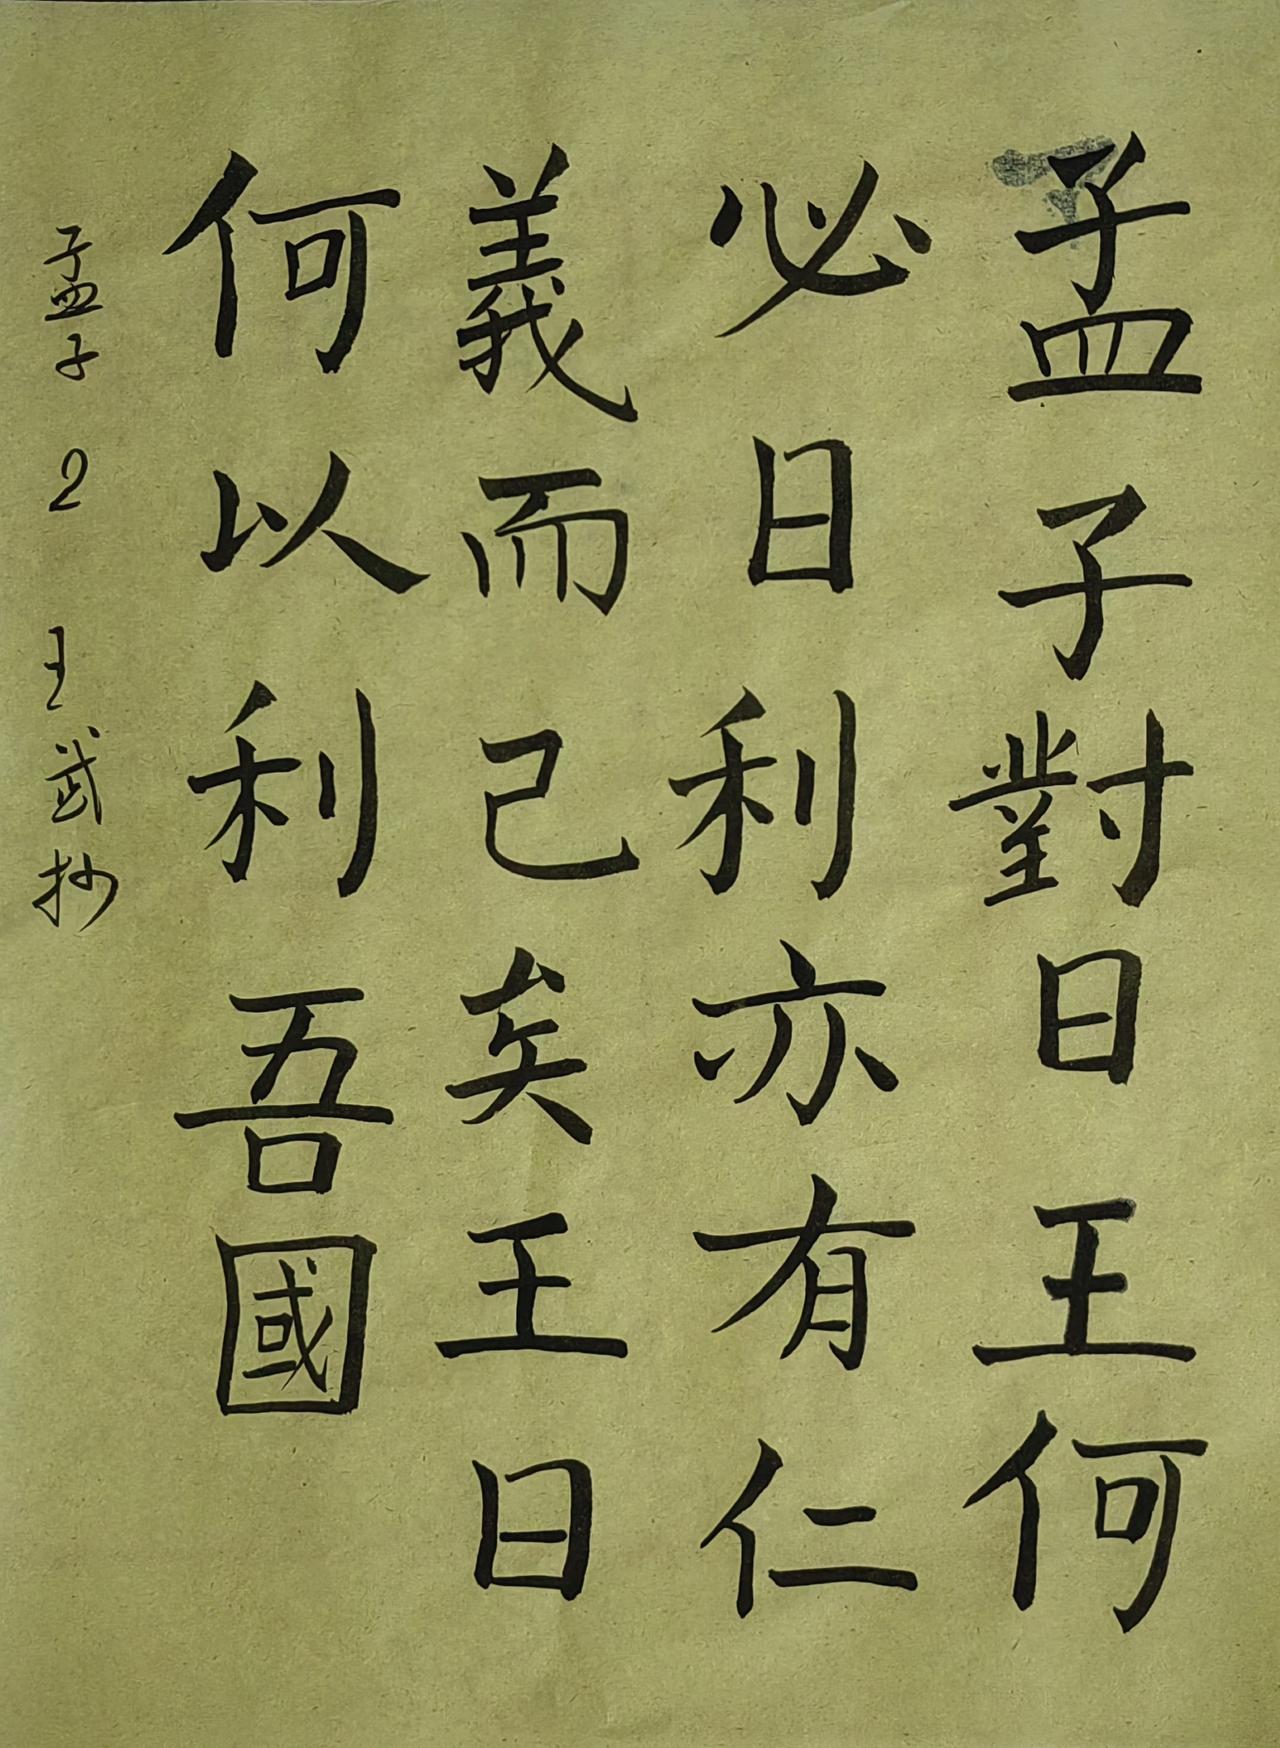 孟子對曰王何
必曰利亦有仁
義而已矣王曰
何以利吾國
孟子 2 王武抄